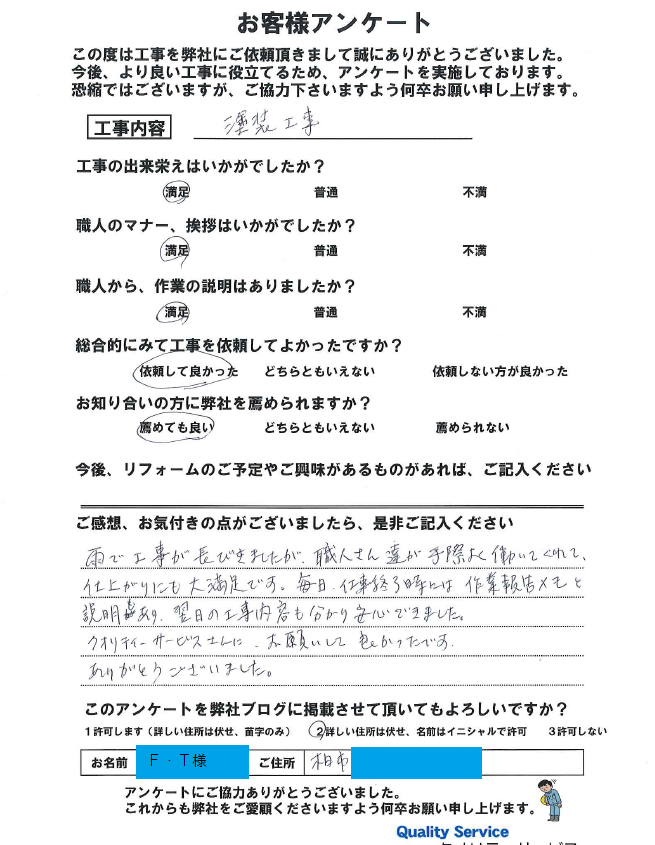 お客様アンケート
この度は工事を弊社にご依頼頂きまして誠にありがとうございました。
今後、より良い工事に役立てるため、アンケートを実施しております。
恐縮ではございますが、ご協力下さいますよう何卒お願い申し上げます。
工事内容 塗装工事
工事の出来栄えはいかがでしたか？
満足 普通 不満
職人のマナー、挨拶はいかがでしたか？
満足 普通 不満
職人から、作業の説明はありましたか？
満足 普通 不満
総合的にみて工事を依頼してよかったですか？
依頼して良かった どちらともいえない 依頼しない方が良かった
お知り合いの方に弊社を薦められますか？
薦めても良い どちらともいえない 薦められない
今後、リフォームのご予定やご興味があるものがあれば、ご記入ください
ご感想、お気付きの点がございましたら、是非ご記入ください
雨で工事が長びきましたが、職人さん達が手際よく働いてくれて、
仕上がりにも大満足です。毎日、仕事終了時には作業報告メモと
説明あり、翌日の工事内容も分かり安心できました。
クオリティーサービスさんに、お願いして良かったです。
ありがとうございました。
このアンケートを弊社ブログに掲載させて頂いてもよろしいですか？
1許可します（詳しい住所は伏せ、苗字のみ） 2詳しい住所は伏せ、名前はイニシャルで許可 3許可しない
お名前 F・T様 ご住所 柏市
アンケートにご協力ありがとうございました。
これからも弊社をご愛顧くださいますよう何卒お願い申し上げます。
Quality Service